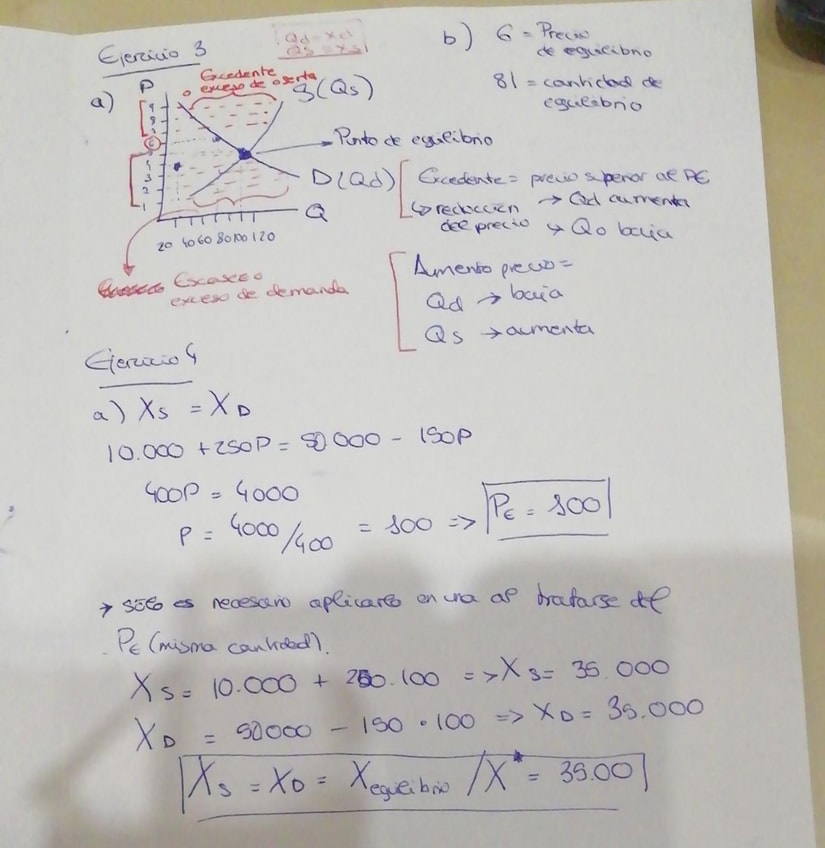 Ejercicio 3
Qd = Xd
Qs = Xs
a)
P
Excedente
o exceso de oferta
S(Qs)
Punto de equilibrio
D(Qd)
Q
20 40 60 80 100 120
Escasez o
exceso de demanda
b) 6 = Precio
de equilibrio
81 = cantidad de
equilibrio
Excedente = precio superior al PE
↳ reducción → Qd aumenta
del precio ↳ Qo baja
Aumento precio =
Qd → baja
Qs → aumenta
Ejercicio 4
a) XS = XD
10.000 + 250P = 50000 - 150P
400P = 4000
P = 4000/400 = 100 => PE = 100
→ sólo es necesario aplicarlo en una al tratarse del
PE (misma cantidad).
XS = 10.000 + 250.100 => XS = 35.000
XD = 50000 - 150 · 100 => XD = 35.000
XS = XD = Xequilibrio / X* = 35.00